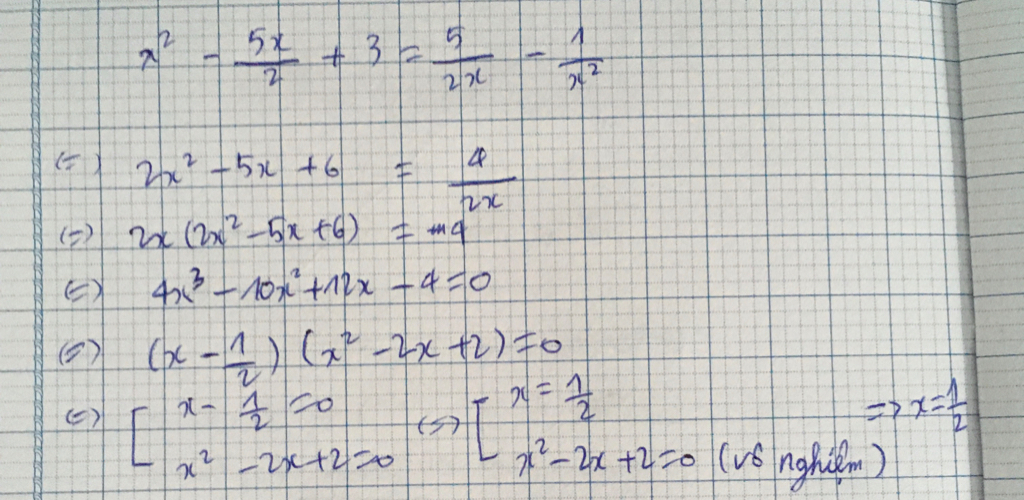 x² - 5x/2 + 3 = 5/2x - 1/x²
(=) 2x² - 5x + 6 = 4/2x
(=) 2x (2x² - 5x + 6) = 4
(=) 4x³ - 10x² + 12x - 4 = 0
(=) (x - 1/2) (x² - 2x + 2) = 0
(=) [ x - 1/2 = 0 (=) [ x = 1/2 => x = 1/2
x² - 2x + 2 = 0 x² - 2x + 2 = 0 (vô nghiệm)